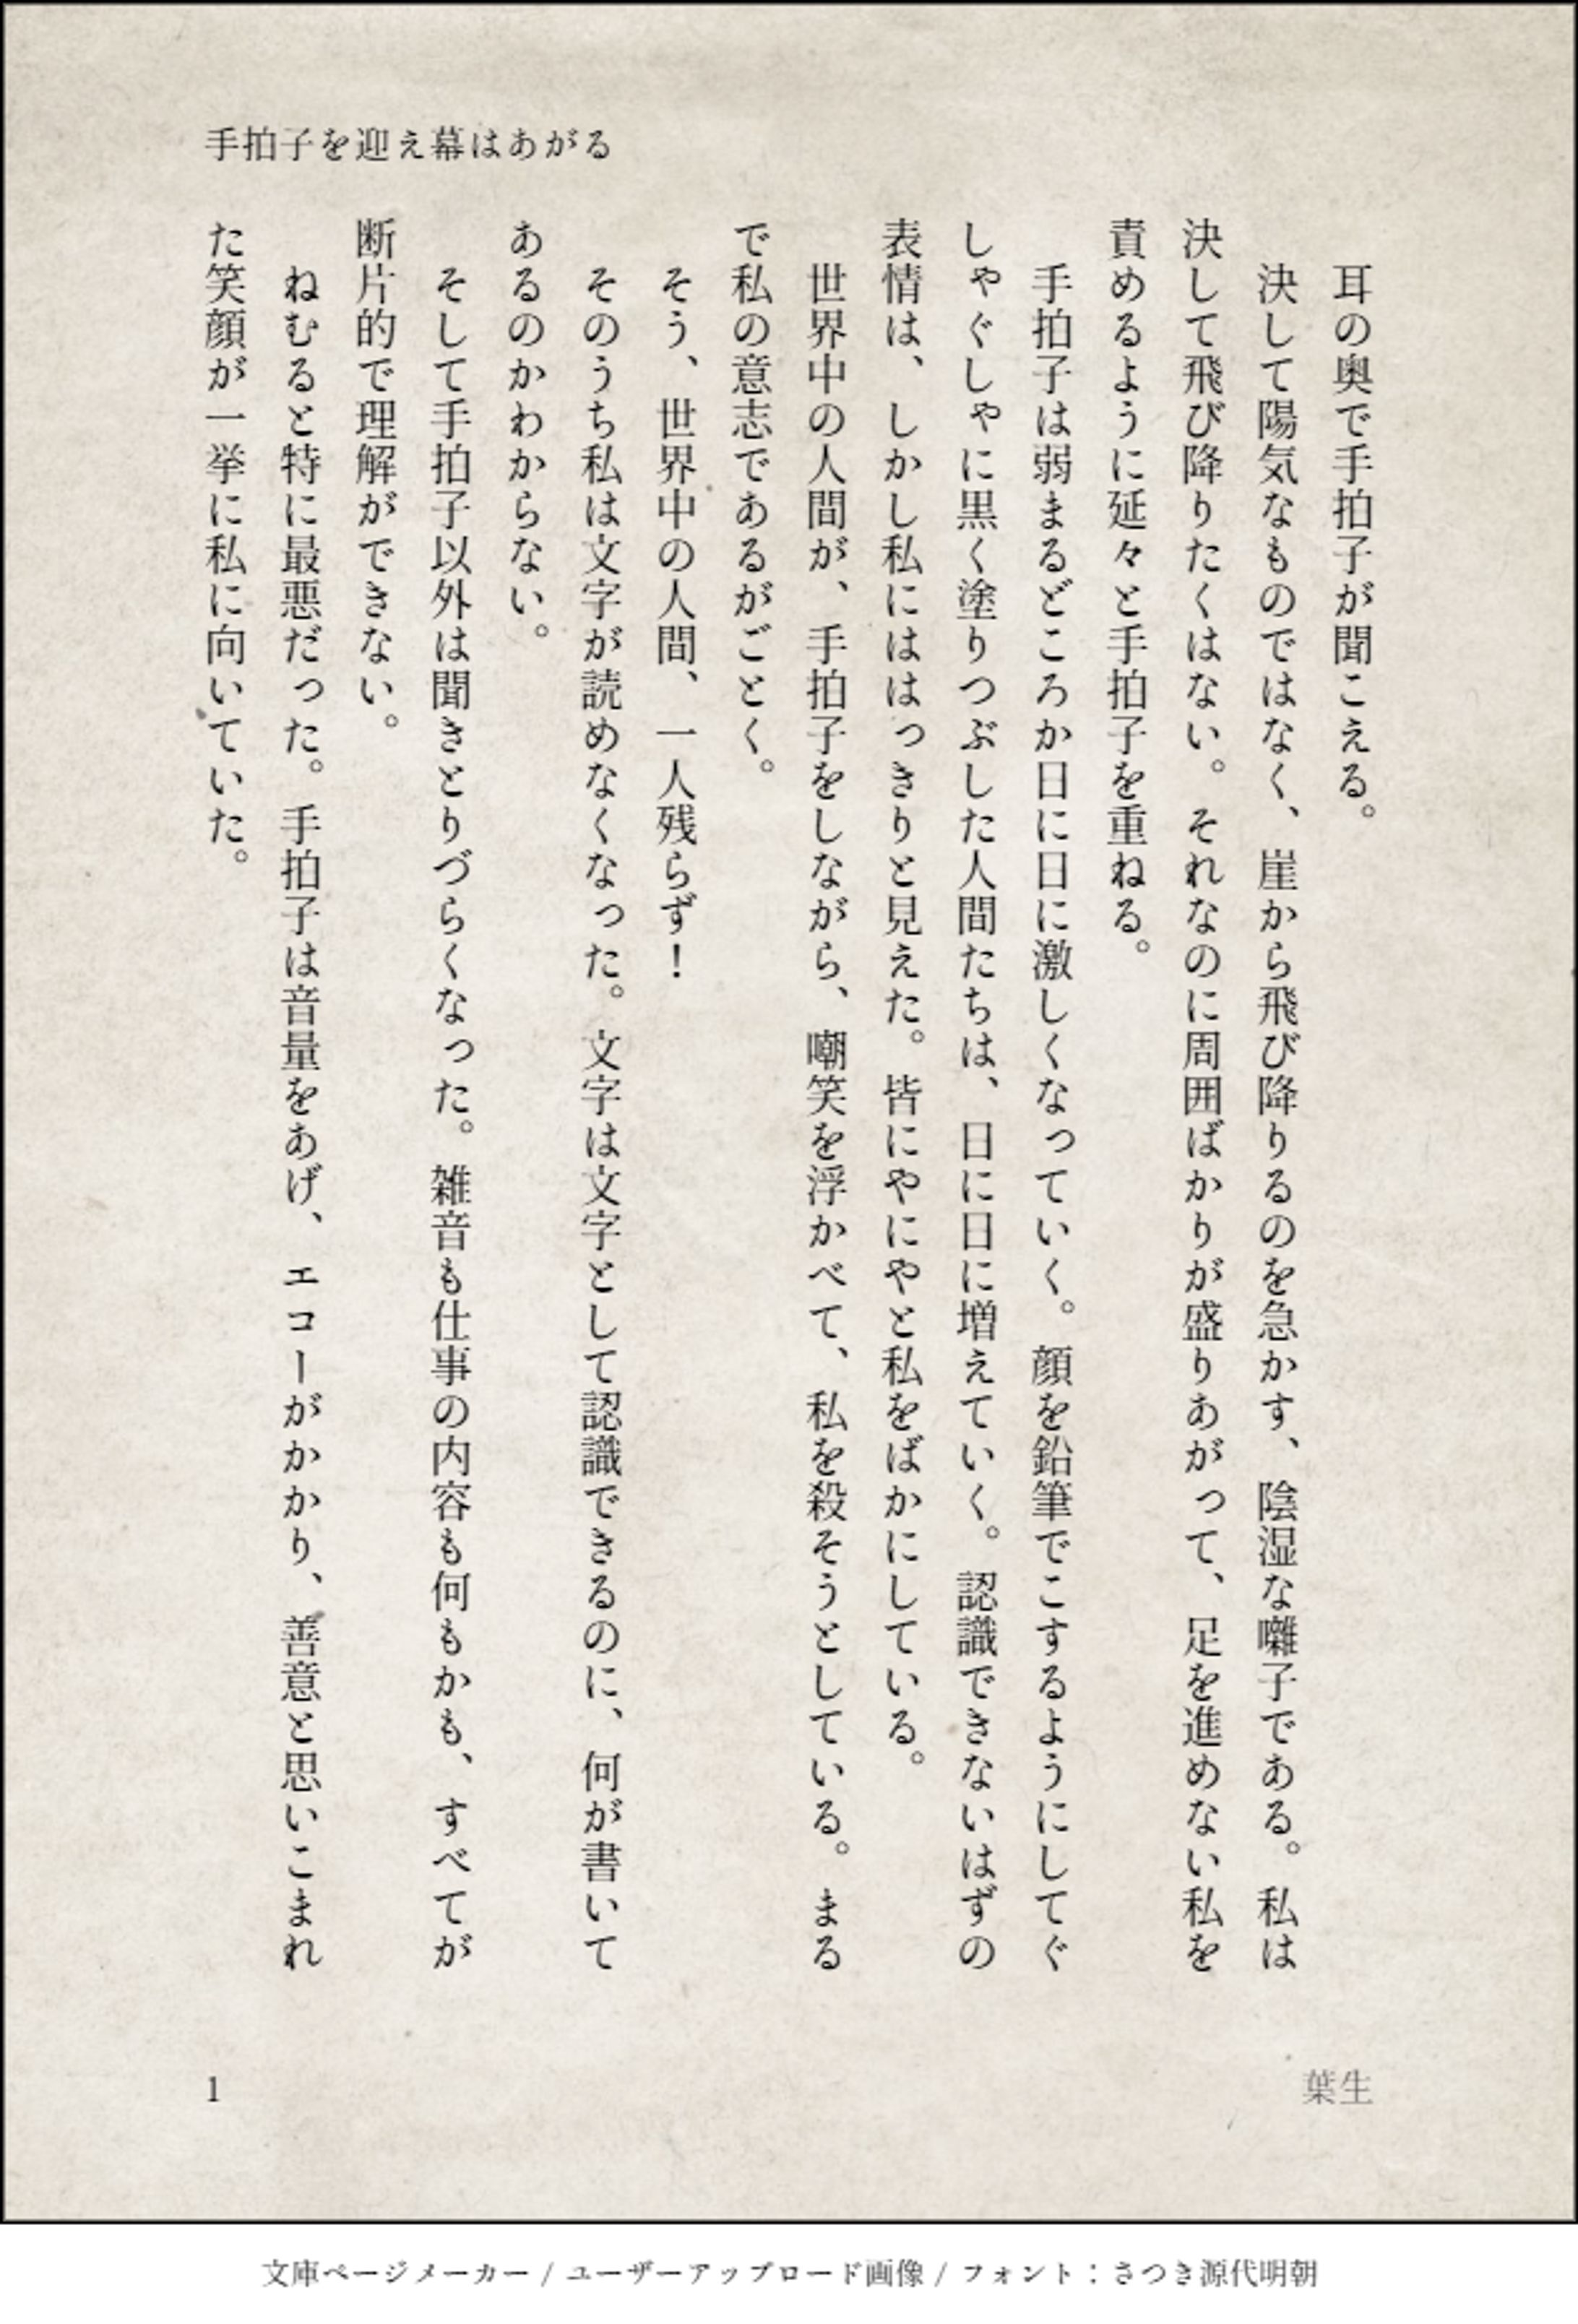 手拍子を迎え幕はあがる
耳の奥で手拍子が聞こえる。
決して陽気なものではなく、崖から飛び降りるのを急かす、陰湿な囃子である。私は
決して飛び降りたくはない。それなのに周囲ばかりが盛りあがって、足を進めない私を
責めるように延々と手拍子を重ねる。
手拍子は弱まるどころか日に日に激しくなっていく。顔を鉛筆でこするようにしてぐ
しゃぐしゃに黒く塗りつぶした人間たちは、日に日に増えていく。認識できないはずの
表情は、しかし私にははっきりと見えた。皆にやにやと私をばかにしている。
世界中の人間が、手拍子をしながら、嘲笑を浮かべて、私を殺そうとしている。まる
で私の意志であるがごとく。
そう、世界中の人間、一人残らず！
そのうち私は文字が読めなくなった。文字は文字として認識できるのに、何が書いて
あるのかわからない。
そして手拍子以外は聞きとりづらくなった。雑音も仕事の内容も何もかも、すべてが
断片的で理解ができない。
ねむると特に最悪だった。手拍子は音量をあげ、エコーがかかり、善意と思いこまれ
た笑顔が一挙に私に向いていた。
葉生
1
文庫ページメーカー / ユーザーアップロード画像 / フォント：さつき源代明朝